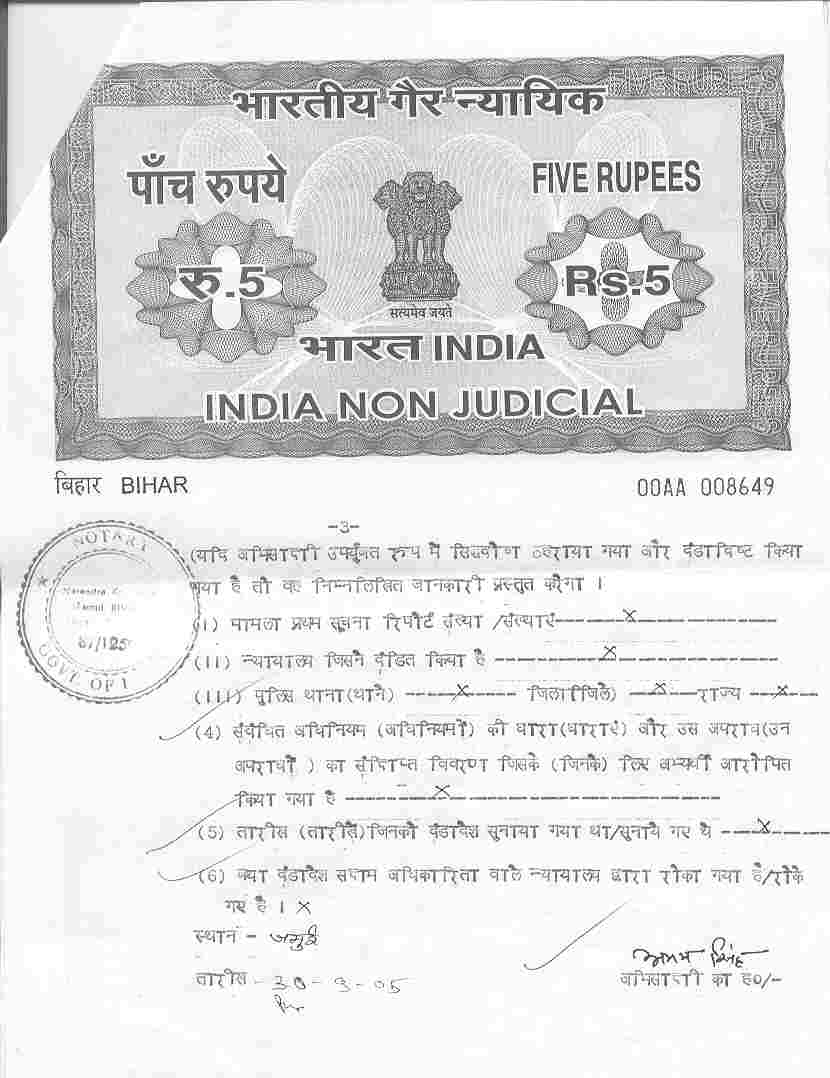 FIVE RUPEES
भारतीय गैर न्यायिक
पाँच रुपये
FIVE RUPEES
रु.5
Rs.5
सत्यमेव जयते
भारत INDIA
INDIA NON JUDICIAL
बिहार BIHAR
00AA 008649
-3-
NOTARY
GOVT. OF I
(यदि अभिसाक्षी उपर्युक्त रूप में सिद्धदोष ठहराया गया और दंडादिष्ट किया
गया है तो वह निम्नलिखित जानकारी प्रस्तुत करेगा ।
(I) मामला प्रथम सूचना रिपोर्ट संख्या /संख्याएं-----x-----
(II) न्यायालय जिसने दंडित किया है -----x-----
(III) पुलिस थाना(थाने) -----x----- जिला(जिले) --x-- राज्य --x--
(4) संबंधित अधिनियम (अधिनियमों) की धारा(धाराएं) और उस अपराध(उन
अपराधों ) का संक्षिप्त विवरण जिसके (जिनके) लिए अभ्यर्थी आरोपित
किया गया है -----x-----
(5) तारीख (तारीखें)जिनको दंडादेश सुनाया गया था/सुनाये गए थे ---x---
(6) क्या दंडादेश सक्षम अधिकारिता वाले न्यायालय द्वारा रोका गया है/रोके
गए हैं । x
स्थान - जमुई
तारीख - 30-9-05
अभिसाक्षी का ह0/-